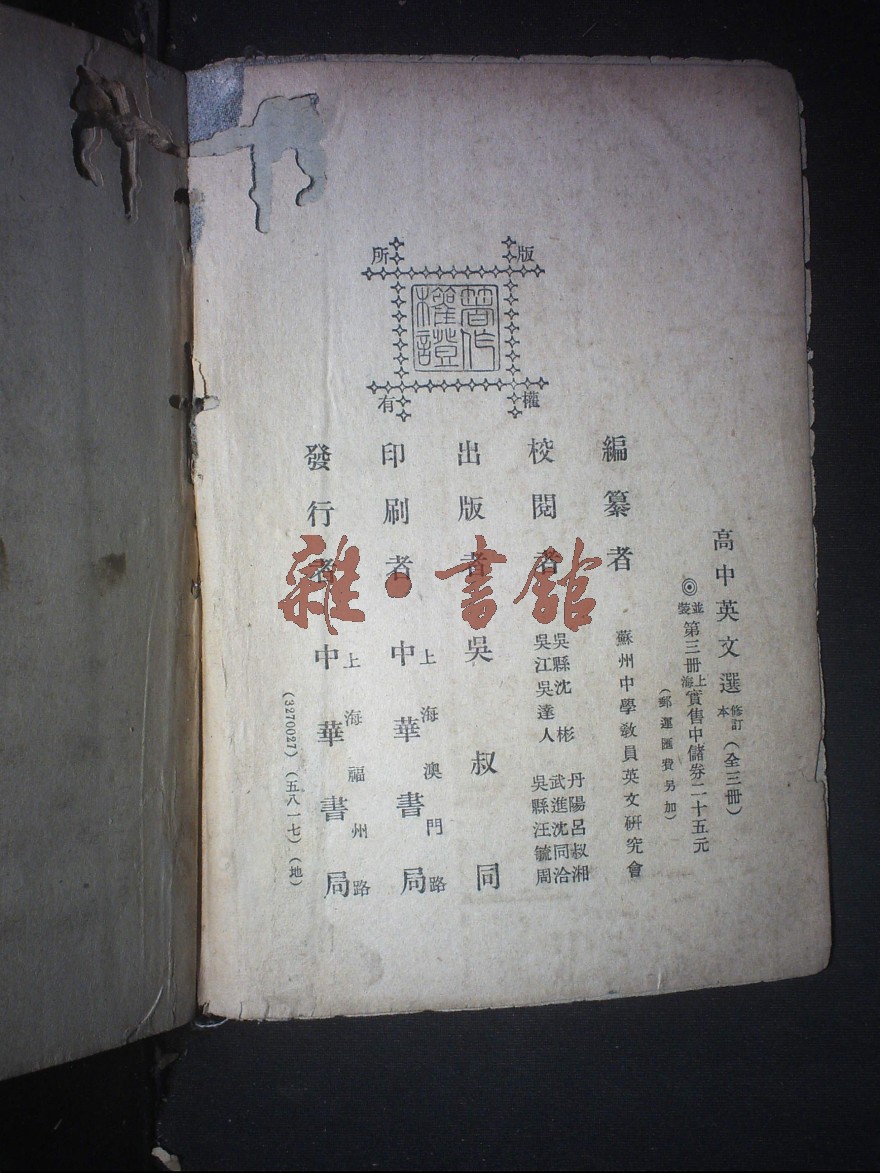 高中英文選 修訂本 (全三冊)
◎並裝 第三冊 上海實售中儲券二十五元
(郵運匯費另加)
編纂者 蘇州中學敎員英文研究會
校閱者 吳縣沈彬 丹陽呂叔湘
吳江吳達人 武進沈同洽
吳縣汪毓周
出版者 吳叔同
印刷者 上海澳門路 中華書局
發行者 上海福州路 中華書局
(3270027)(五八一七)(地)
版權所有
著作權證
雜·書館